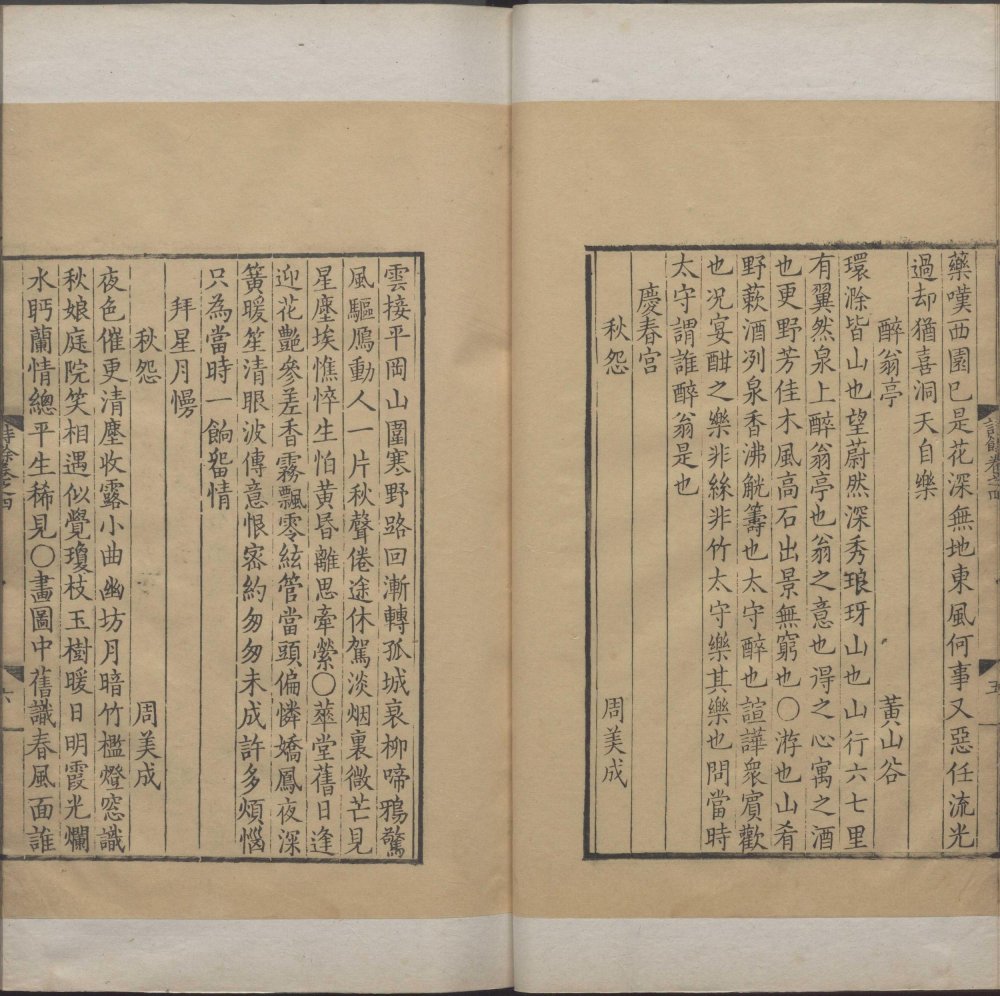 藥嘆西園已是花深無地東風何事又惡任流光
過却猶喜洞天自樂
醉翁亭　黃山谷
環滁皆山也望蔚然深秀琅玡山也山行六七里
有翼然泉上醉翁亭也翁之意也得之心寓之酒
也更野芳佳木風高石出景無窮也〇游也山肴
野蔌酒冽泉香沸觥籌也太守醉也諠譁衆賓歡
也况宴酣之樂非絲非竹太守樂其樂也問當時
太守謂誰醉翁是也
慶春宮
秋怨　周美成
五
雲接平岡山圍寒野路回漸轉孤城衰柳啼鴉驚
風驅鴈動人一片秋聲倦途休駕淡烟裏微芒見
星塵埃憔悴生怕黃昏離思牽縈〇華堂舊日逢
迎花艷參差香霧飄零絃管當頭偏憐嬌鳳夜深
簧暖笙清眼波傳意恨密約匆匆未成許多煩惱
只為當時一餉畱情
拜星月慢
秋怨　周美成
夜色催更清塵收露小曲幽坊月暗竹檻燈窓識
秋娘庭院笑相遇似覺瓊枝玉樹暖日明霞光爛
水眄蘭情總平生稀見〇畫圖中舊識春風面誰
詩餘卷之四
六